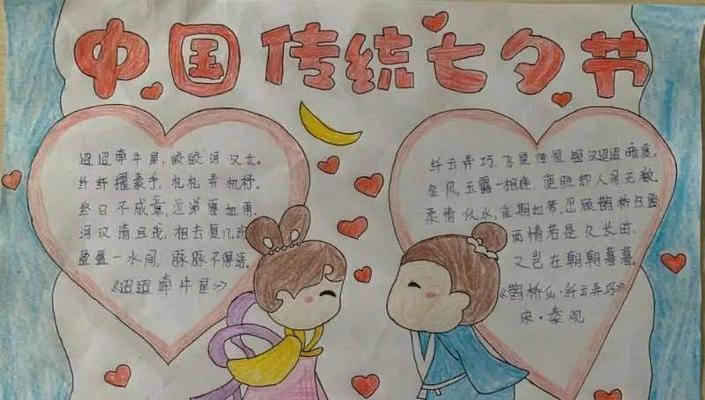 中国传统七夕节
迢迢牵牛星,皎皎河汉女。
纤纤擢素手,札札弄机杼。
终日不成章,泣涕零如雨。
河汉清且浅,相去复几许
盈盈一水间,脉脉不得语。
《迢迢牵牛星》
纤云弄巧,飞星传恨,银汉迢迢暗度。
金风玉露一相逢,便胜却人间无数。
柔情似水,佳期如梦,忍顾鹊桥归路。
两情若是久长时,
又岂在朝朝暮暮。
《鹊桥仙·纤云弄巧》
宋·秦观